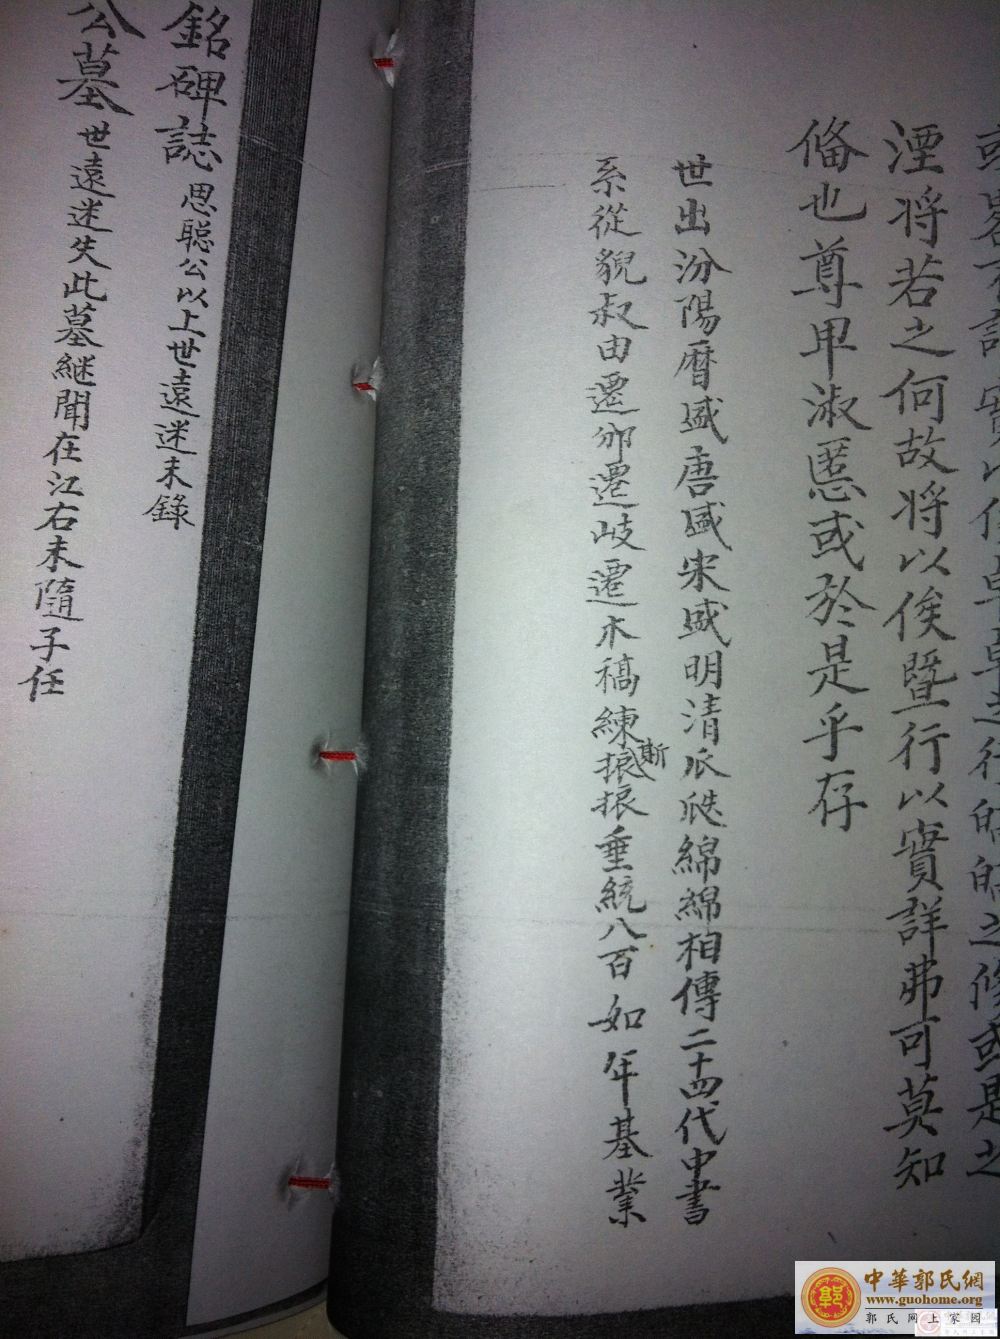 湮将若之何故将以俟暨行以實詳弗可莫知
俻也尊甲淑慝或於是乎存
世出汾陽暦盛唐盛宋盛明清瓜瓞綿綿相傳二十四代中書
系從貌叔由遷邠遷岐遷木稿練振振垂統八百如年基業
斯
銘碑誌 思聪公以上世遠迷未錄
公墓 世遠迷失此墓継聞在江右未隨子任
中華郭氏網
www.guohome.org
郭氏网上家园